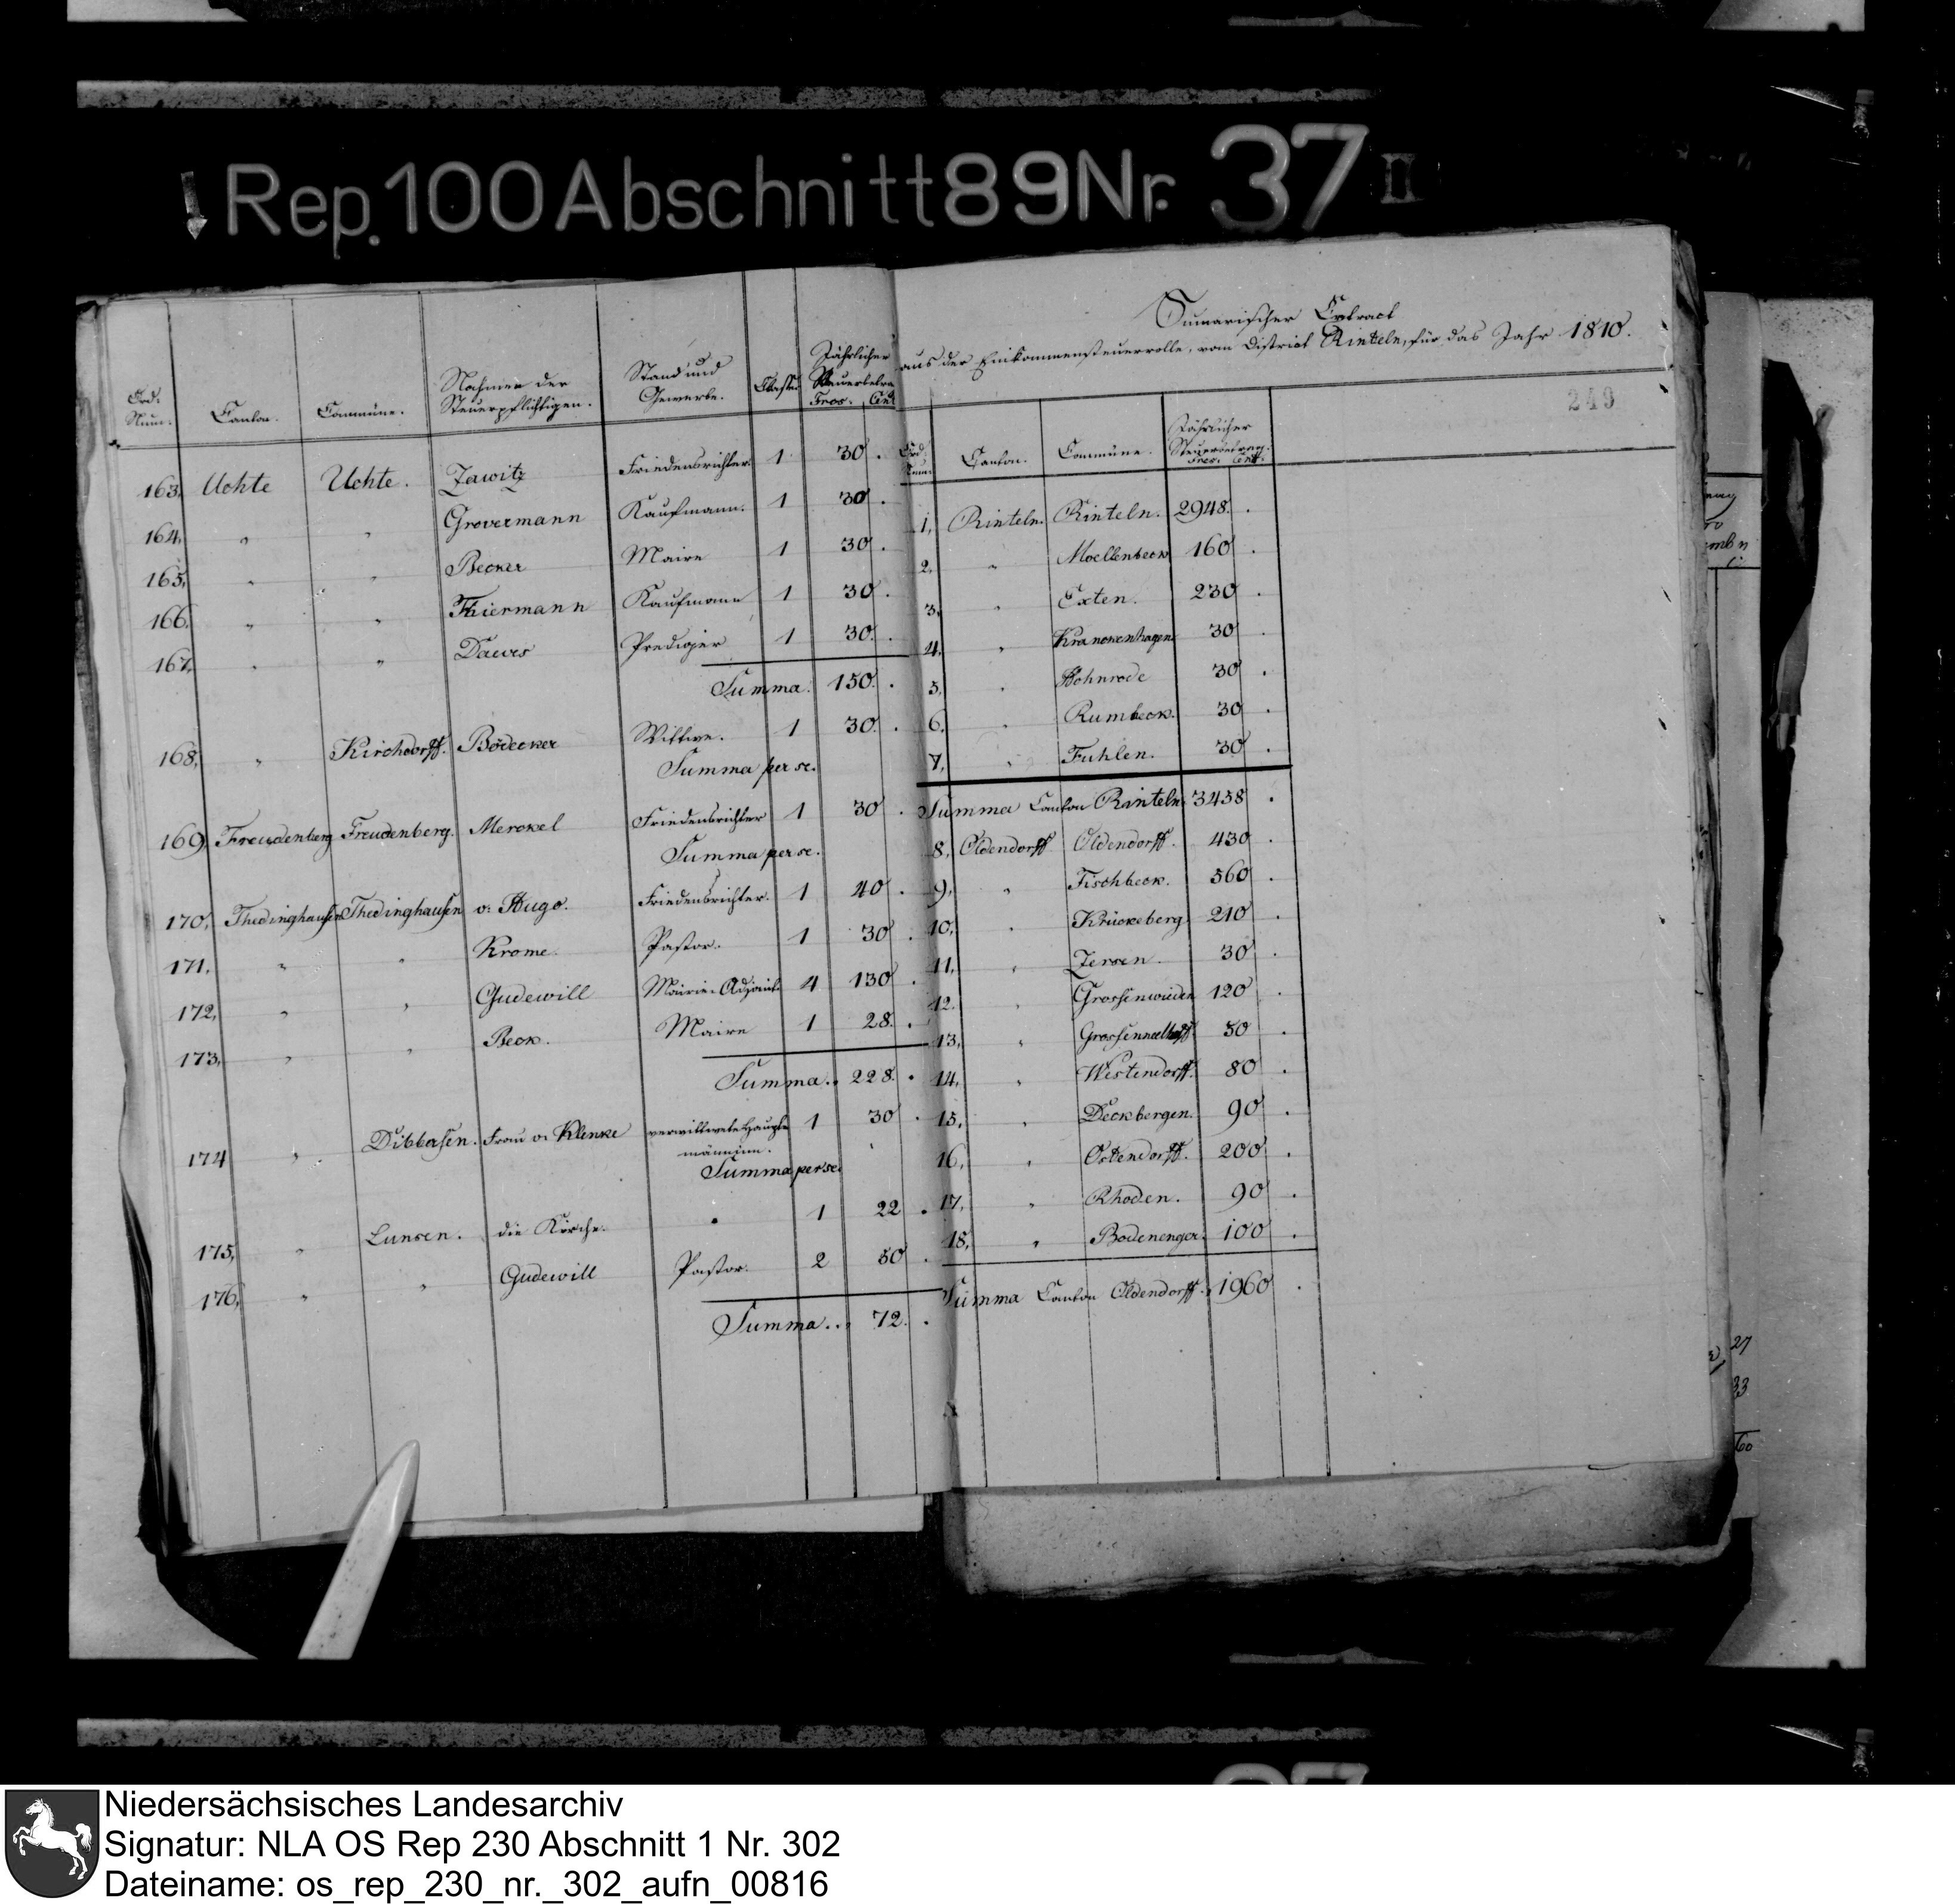 Rep. 100 Abschnitt 89 Nr. 37 II
Ord: Num: Canton. Commüne. Nahmen der Steuerpflichtigen. Stand und Gewerbe. Classe Jährlicher Steuerbetrag Frcs. Cent
163. Uchte Uchte. Zawitz Friedensrichter 1 30 .
164. " " Grovermann Kaufmann. 1 30 .
165. " " Becker Maire 1 30 .
166. " " Thiermann Kaufmann 1 30 .
167. " " Dawes Prediger 1 30. .
Summa. 150. .
168. " Kirchdorff. Bödecker Wittwe. 1 30. .
Summa per se.
169. Freudenberg Freudenberg. Merckel Friedensrichter 1 30 .
Summa per se.
170. Thedinghausen Thedinghausen v. Hugo. Friedensrichter. 1 40 .
171. " " Krome. Pastor. 1 30 .
172. " " Gudewill Mairie-Adjoint 4 130 .
173. " " Beck. Maire 1 28. .
Summa.. 228. .
174 " Dibbersen. Frau v. Klenke verwittwete Haupt- 1 30 .
männinn.
Summa per se.
175. " Lunsen. die Kirche. " 1 22 .
176. " " Gudewill Pastor. 2 50 .
Summa... 72. .
Sumarischer Extract
aus der Einkommensteuerrolle, vom District Rinteln, für das Jahr 1810.
249
Ord: Num: Canton. Commüne. Jährlicher Steuerbetrag. Frcs. Cent.
1. Rinteln. Rinteln. 2948. .
2. " Moellenbeck 160 .
3. " Exten. 230 .
4. " Kranckenhagen 30 .
5. " Hohnrode 30 .
6. " Rumbeck. 30 .
7. " Fuhlen. 30 .
Summa Canton Rinteln 3458 .
8. Oldendorff Oldendorff. 430 .
9. " Fischbeck. 560 .
10. " Krückeberg 210 .
11. " Zersen. 30 .
12. " Grossenwieden 120 .
13. " 50 .
14. " Westendorff. 80 .
15. " Deckbergen. 90 .
16. " Ostendorff. 200 .
17. " Rhoden. 90 .
18. " Bodenengern. 100 .
Summa Canton Oldendorff. 1960 .
27
33
60
Niedersächsisches Landesarchiv
Signatur: NLA OS Rep 230 Abschnitt 1 Nr. 302
Dateiname: os_rep_230_nr._302_aufn_00816